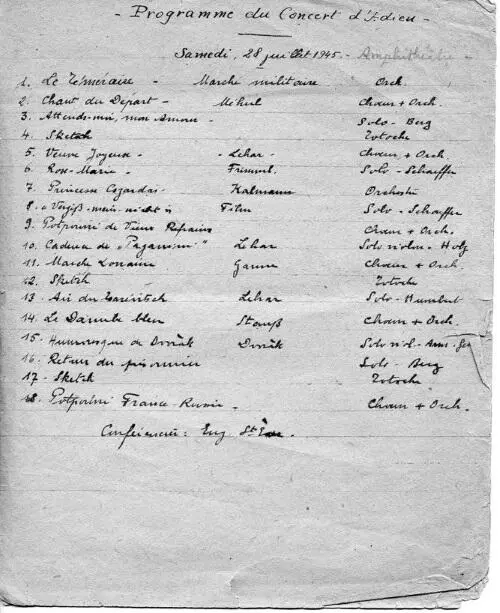 - Programme du Concert d'Adieu -
Samedi, 28 juillet 1945. - Amphithéâtre -
1. Le Téméraire - Marche militaire Orch.
2. Chant du Départ - Méhul Chœur + Orch.
3. Attends-moi, mon Amour - Solo - Berg
4. Sketch Totoche
5. Veuve Joyeuse - - Lehar - Chœur + Orch.
6. Rose-Marie - Friml. Solo - Schaeffer
7. Princesse Czardas Kalmann Orchestre
8. "Vergiß-mein-nicht" Film Solo - Schaeffer
9. Potpourri de Vieux Refrains Chœur + Orch.
10. Cadeau de "Paganini" Lehar Solo violon - Holz
11. Marche Lorraine Ganne Chœur + Orch.
12. Sketch Totoche
13. Air du Zarévitsch Lehar Solo - Humbert
14. Le Danube bleu Strauß Chœur + Orch.
15. Humoresque de Dvořák Dvořák Solo viol.
16. Retour du prisonnier Solo - Berg
17. Sketch Totoche
18. Potpourri France-Russie - Chœur + Orch.
Conférencier: Eug.